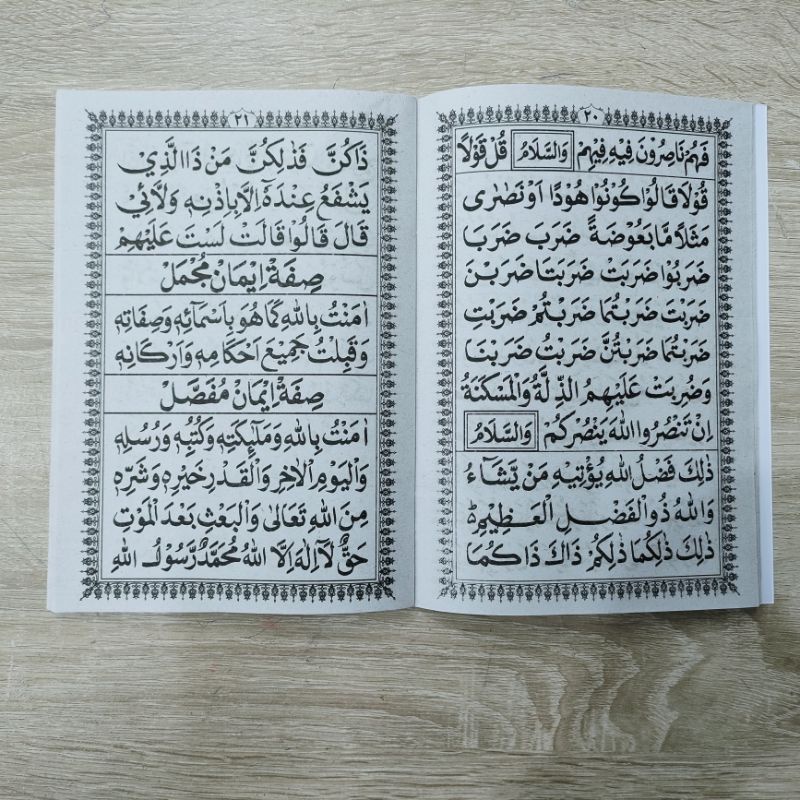 ٢٠
فَهُمْ نَاصِرُوْنَ فِيْهِ فِيْهِمْ وَالسَّلَامُ قُلْ قَوْلًا
قُوْلَا قَالُوْا كُوْنُوْا هُوْدًا اَوْ نَصٰرٰى
مَثَلًا مَّا بَعُوْضَةً ضَرَبَ ضَرَبَا
ضَرَبُوْا ضَرَبَتْ ضَرَبَتَا ضَرَبْنَ
ضَرَبْتَ ضَرَبْتُمَا ضَرَبْتُمْ ضَرَبْتِ
ضَرَبْتُمَا ضَرَبْتُنَّ ضَرَبْتُ ضَرَبْنَا
وَضُرِبَتْ عَلَيْهِمُ الذِّلَّةُ وَالْمَسْكَنَةُ
اِنْ تَنْصُرُوا اللهَ يَنْصُرْكُمْ وَالسَّلَامُ
ذٰلِكَ فَضْلُ اللهِ يُؤْتِيْهِ مَنْ يَّشَآءُ
وَاللهُ ذُو الْفَضْلِ الْعَظِيْمِ
ذٰلِكَ ذٰلِكُمَا ذٰلِكُمْ ذَاكَ ذَاكُمَا
٢١
ذَاكُنَّ فَذٰلِكُنَّ مَنْ ذَا الَّذِيْ
يَشْفَعُ عِنْدَهٗ اِلَّا بِاِذْنِهٖ وَلَائِيْ
قَالَ قَالُوْا قَالَتْ لَسْتَ عَلَيْهِمْ
صِفَةُ اِيْمَانْ مُجْمَلْ
اٰمَنْتُ بِاللهِ كَمَا هُوَ بِاَسْمَآئِهٖ وَصِفَاتِهٖ
وَقَبِلْتُ جَمِيْعَ اَحْكَامِهٖ وَاَرْكَانِهٖ
صِفَةُ اِيْمَانْ مُفَصَّلْ
اٰمَنْتُ بِاللهِ وَمَلٰٓئِكَتِهٖ وَكُتُبِهٖ وَرُسُلِهٖ
وَالْيَوْمِ الْاٰخِرِ وَالْقَدْرِ خَيْرِهٖ وَشَرِّهٖ
مِنَ اللهِ تَعَالٰى وَالْبَعْثِ بَعْدَ الْمَوْتِ
حَقٌّ لَآ اِلٰهَ اِلَّا اللهُ مُحَمَّدٌ رَّسُوْلُ اللهِ